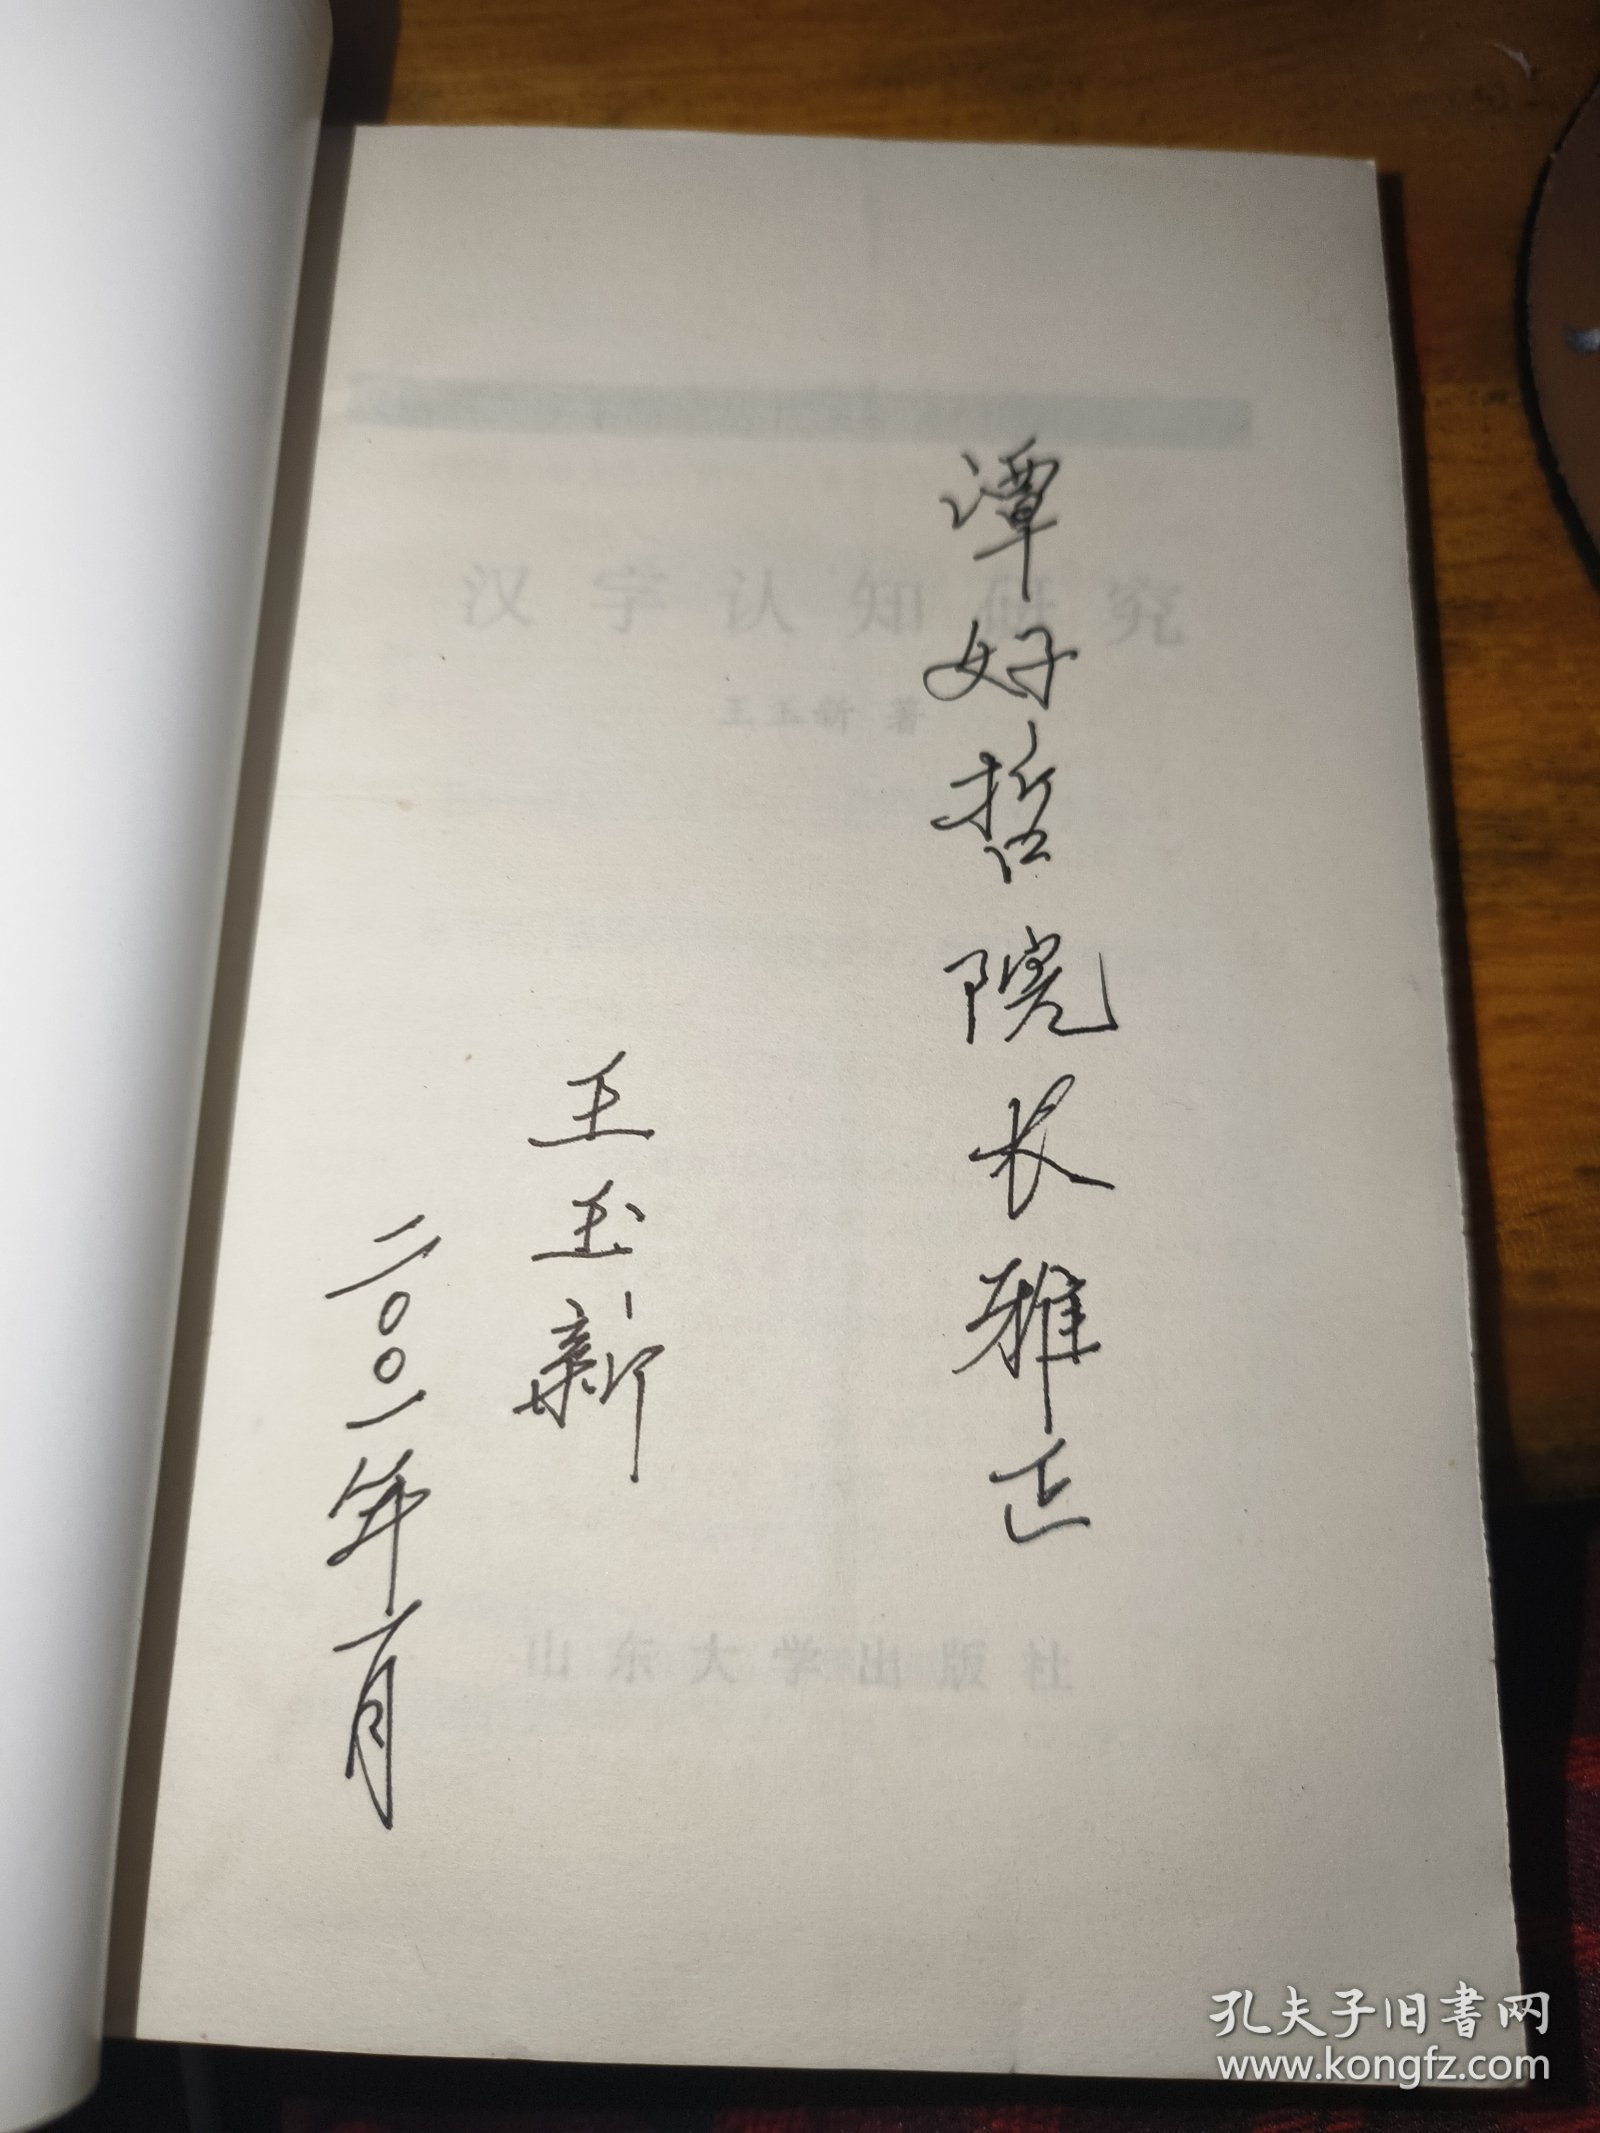 谭好哲院长雅正
王玉新
二〇〇一年一月
汉字认知研究
王玉新 著
山东大学出版社
孔夫子旧书网
www.kongfz.com